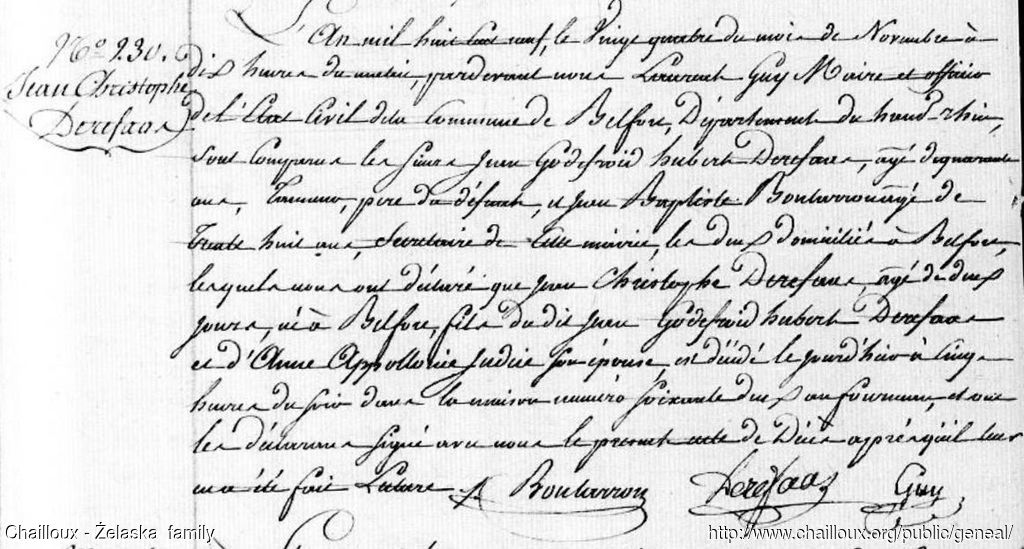 N.o 230.
Jean Christophe
Derefaas
L'An mil huit cent neuf, le vingt quatre du mois de Novembre à
dix heures du matin, pardevant nous Laurent Guy Maire et officier
de l'Etat Civil de la Commune de Belfort, Département du haut-rhin,
sont comparus les sieurs Jean Godefroid hubert Derefaas, âgé de quarante
ans, Tanneur, père du défunt, et Jean Baptiste Boutarron âgé de
trente huit ans, Secretaire de cette mairie, les deux domiciliés à Belfort,
lesquels nous ont déclaré que Jean Christophe Derefaas, âgé de deux
jours, né à Belfort, fils dudit Jean Godefroid hubert Derefaas
et d'Anne Appollonie son épouse, est décédé le jourd'hier à cinq
heures du soir dans la maison numéro soixante deux au fourneau, et ont
les déclarans signé avec nous le present acte de Décès après qu'il leur
en a été fait Lecture.
Boutarron
Derefaas
Guy
Chailloux - Żelaska family
http://www.chailloux.org/public/geneal/